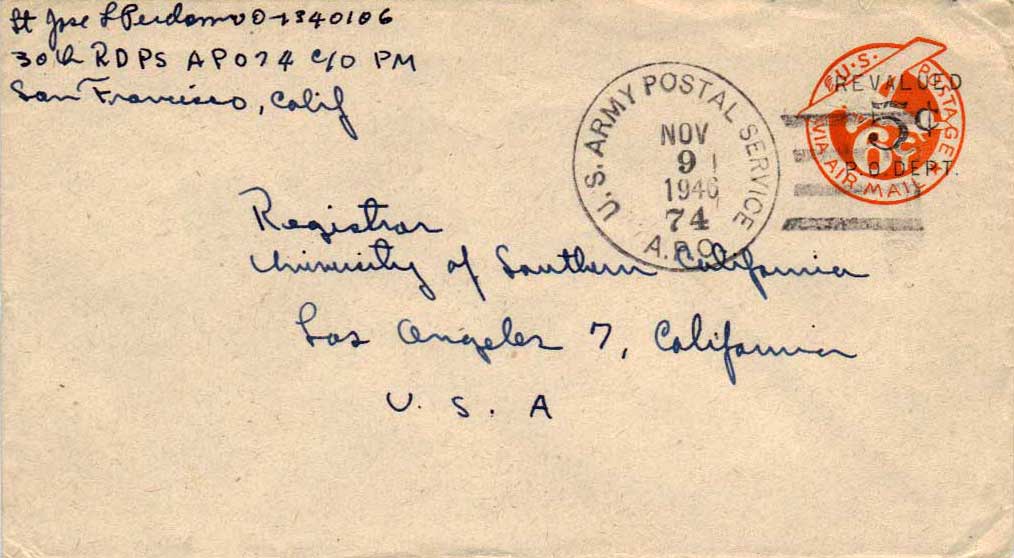 Lt Jose L Perdomo O-1340106
30th RDPS APO 74 C/O PM
San Francisco, Calif
U.S. ARMY POSTAL SERVICE
NOV
9
1946
74
A.P.O.
U.S. POSTAGE
REVALUED
5¢
6
P.O. DEPT.
VIA AIR MAIL
Registrar
University of Southern California
Los Angeles 7, California
U. S. A